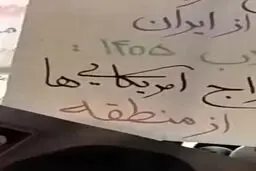 از ایران
۱۴۰۵ :
اج آمریکایی ها
از منطقه